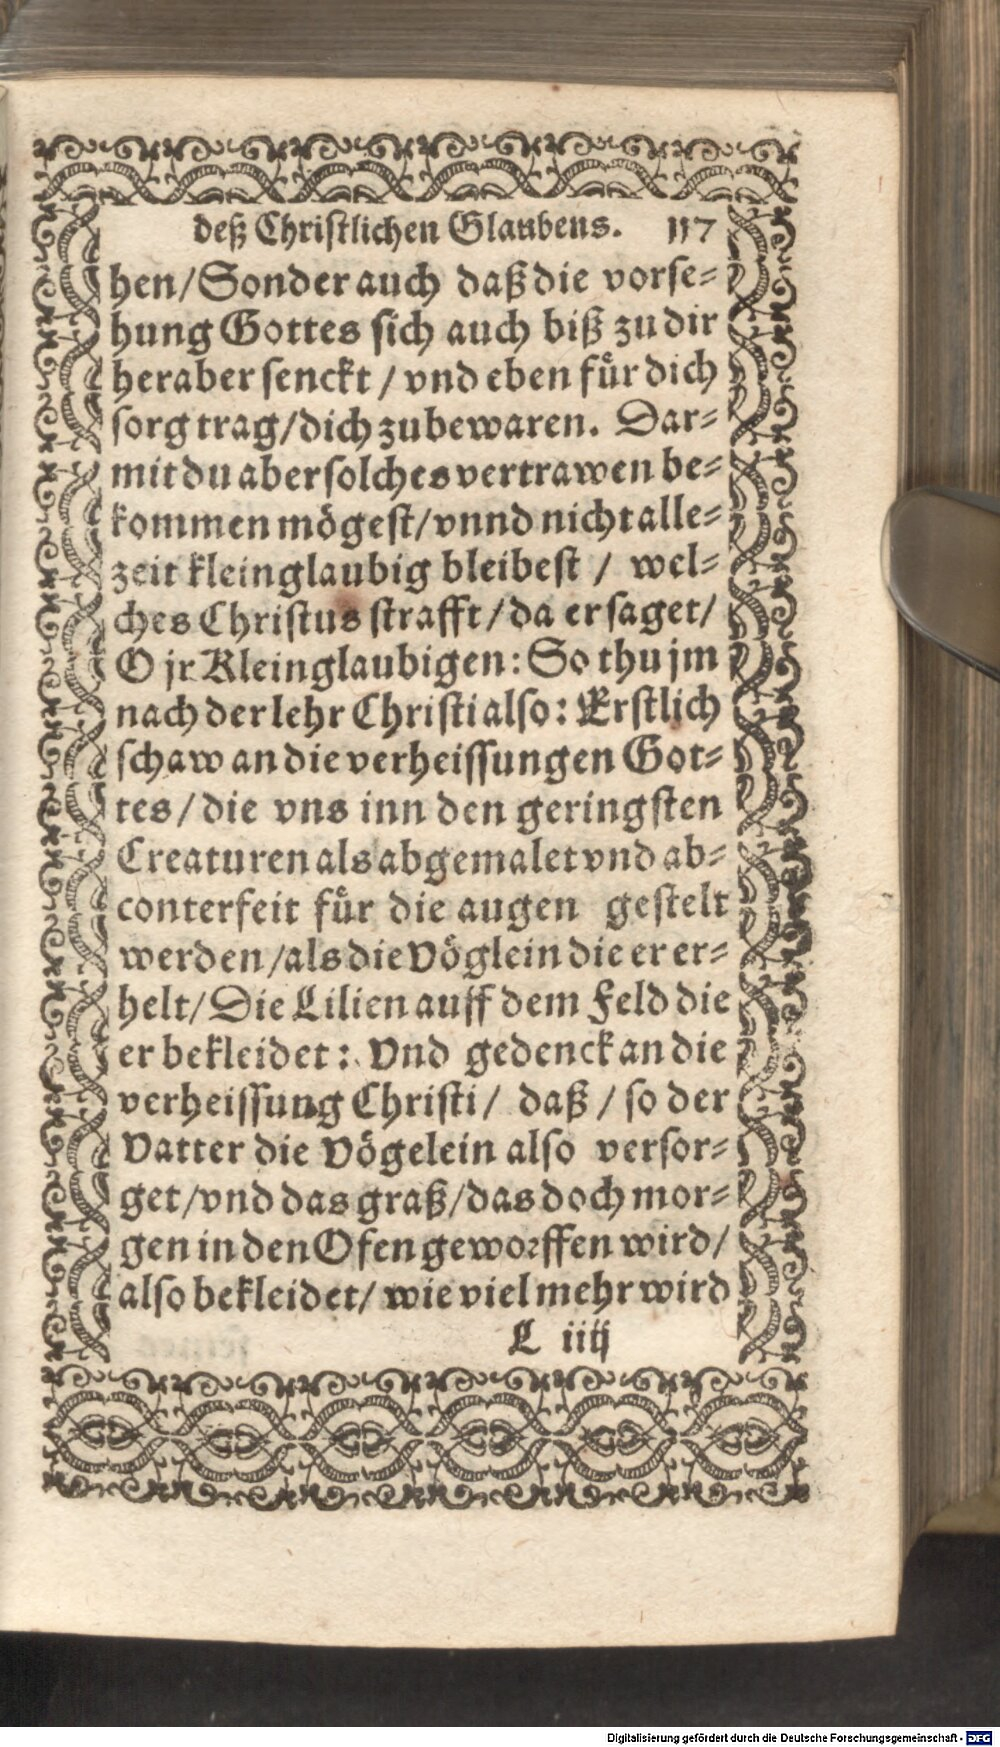 deß Christlichen Glaubens. 117
hen/Sonder auch daß die vorse-
hung Gottes sich auch biß zu dir
heraber senckt / vnd eben fuͤr dich
sorg trag/dich zubewaren. Dar-
mit du aber solches vertrawen be-
kommen moͤgest/vnnd nicht alle-
zeit kleinglaubig bleibest / wel-
ches Christus strafft/da er saget/
O jr Kleinglaubigen: So thu jm
nach der lehr Christi also: Erstlich
schaw an die verheissungen Got-
tes/die vns inn den geringsten
Creaturen als abgemalet vnd ab-
conterfeit fuͤr die augen gestelt
werden/als die Voͤglein die er er-
helt/Die Lilien auff dem Feld die
er bekleidet: Vnd gedenck an die
verheissung Christi/ daß/so der
Vatter die Voͤgelein also versor-
get/vnd das graß/das doch mor-
gen in den Ofen geworffen wird/
also bekleidet/wie viel mehr wird
L iiij
Digitalisierung gefördert durch die Deutsche Forschungsgemeinschaft - DFG